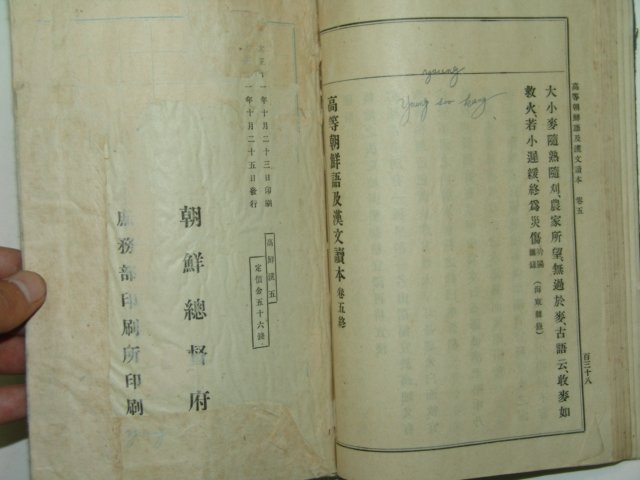 高等朝鮮語及漢文讀本 卷五
百三十八
大小麥隨熟隨刈、農家所望、無過於麥、古語云、收麥如
救火、若小遲緩、終爲災傷、(海東雜錄)
young
Young soo kang
高等朝鮮語及漢文讀本 卷五終
一年十月二十三日印刷
一年十月二十五日發行
高鮮漢五
定價金五十六錢
朝鮮總督府
庶務部印刷所印刷